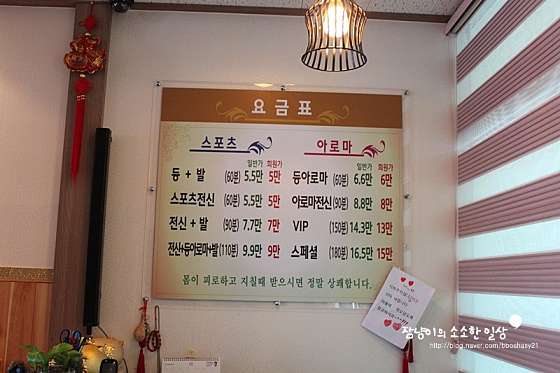 요금표
스포츠
일반가 회원가
등 + 발 (60분) 5.5만 5만
스포츠전신 (60분) 5.5만 5만
전신 + 발 (90분) 7.7만 7만
전신+등아로마+발 (110분) 9.9만 9만
아로마
일반가 회원가
등아로마 (60분) 6.6만 6만
아로마전신 (90분) 8.8만 8만
VIP (150분) 14.3만 13만
스페셜 (180분) 16.5만 15만
몸이 피로하고 지칠때 받으시면 정말 상쾌합니다.
깜냥이의 소소한 일상